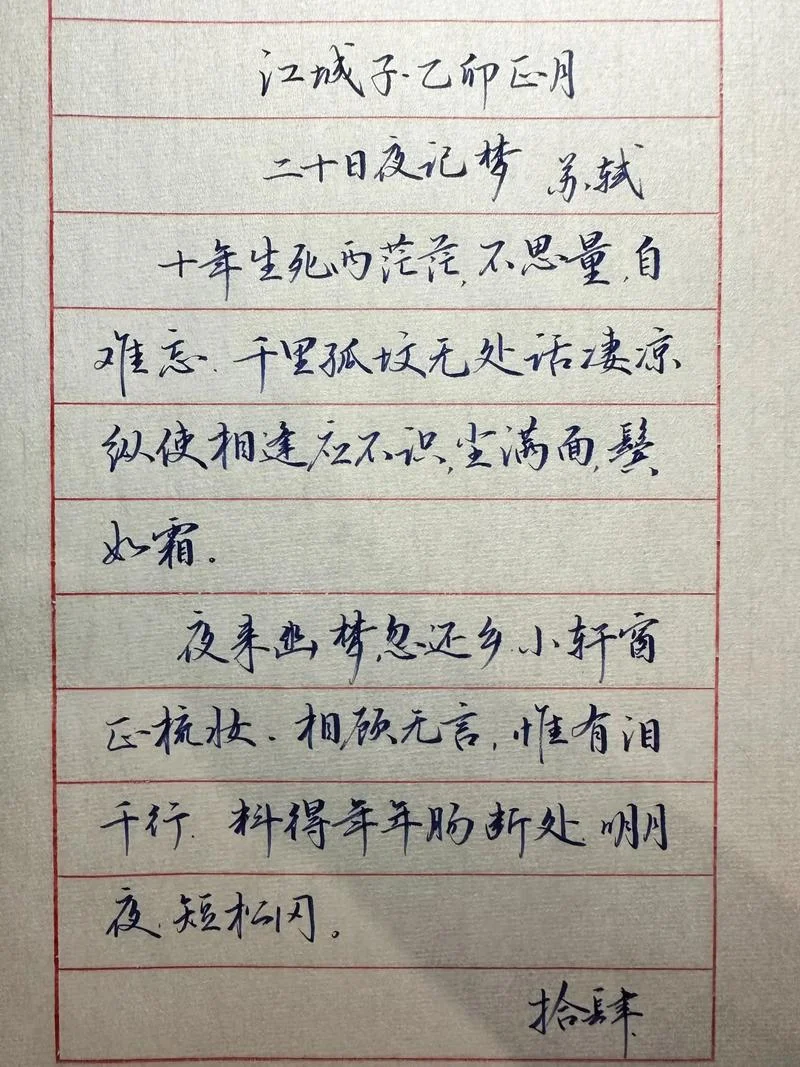 江城子·乙卯正月
二十日夜记梦 苏轼
十年生死两茫茫,不思量,自
难忘.千里孤坟无处话凄凉
纵使相逢应不识,尘满面,鬓
如霜。
夜来幽梦忽还乡.小轩窗
正梳妆.相顾无言,惟有泪
千行.料得年年肠断处.明月
夜.短松冈。
拾肆